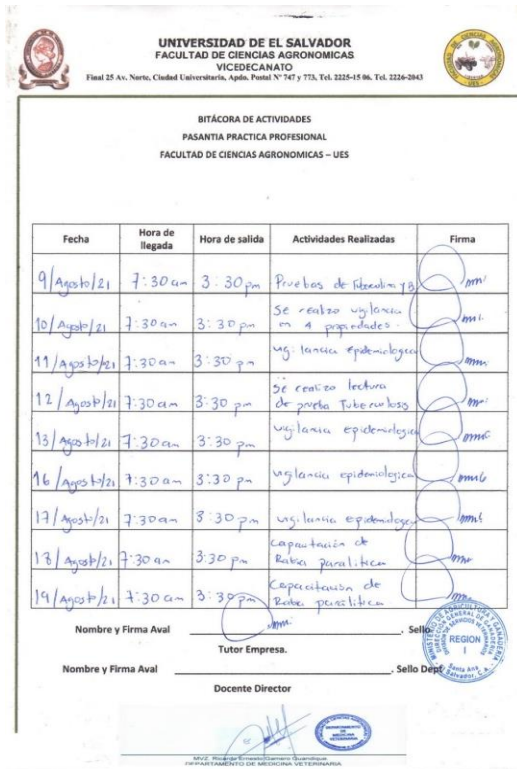 UNIVERSIDAD DE EL SALVADOR
FACULTAD DE CIENCIAS AGRONOMICAS
VICEDECANATO
Final 25 Av. Norte, Ciudad Universitaria, Apdo. Postal Nº 747 y 773, Tel. 2225-15 06. Tel. 2226-2043
BITÁCORA DE ACTIVIDADES
PASANTIA PRACTICA PROFESIONAL
FACULTAD DE CIENCIAS AGRONOMICAS – UES
Fecha Hora de llegada Hora de salida Actividades Realizadas Firma
9/Agosto/21 7:30 am 3:30 pm Pruebas de Tuberculina y B
10/Agosto/21 7:30 am 3:30 pm Se realizo vigilancia
en 4 propiedades.
11/Agosto/21 7:30 am 3:30 pm vigilancia epidemiologica
12/Agosto/21 7:30 am 3:30 pm Se realizo lectura
de prueba Tuberculosis
13/Agosto/21 7:30 am 3:30 pm vigilancia epidemiologica
16/Agosto/21 7:30 am 3:30 pm vigilancia epidemiologica
17/Agosto/21 7:30 am 3:30 pm vigilancia epidemiologica
18/Agosto/21 7:30 am 3:30 pm Capacitación de
Rabia paralitica
19/Agosto/21 7:30 am 3:30 pm Capacitación de
Rabia paralitica
Nombre y Firma Aval . Sello
Tutor Empresa.
MINISTERIO DE AGRICULTURA Y GANADERIA
DIRECCION GENERAL DE GANADERIA
REGION
I
Santa Ana
El Salvador, C.A.
Nombre y Firma Aval . Sello Dept
Docente Director
DEPARTAMENTO
DE
MEDICINA
VETERINARIA
MVZ. Ricardo Ernesto Gamero Guandique.
DEPARTAMENTO DE MEDICINA VETERINARIA